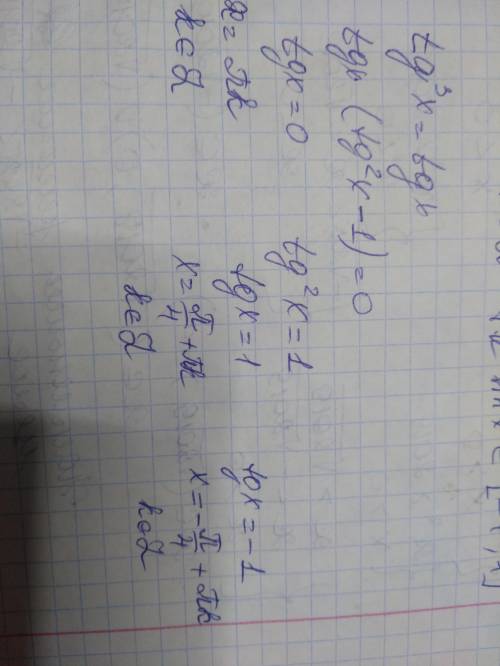 tg³x = tgx
tgx (tg²x - 1) = 0
tgx = 0    tg²x = 1
x = πk    tgx = 1    tgx = -1
k ∈ Z    x = π/4 + πk    x = -π/4 + πk
k ∈ Z    k ∈ Z